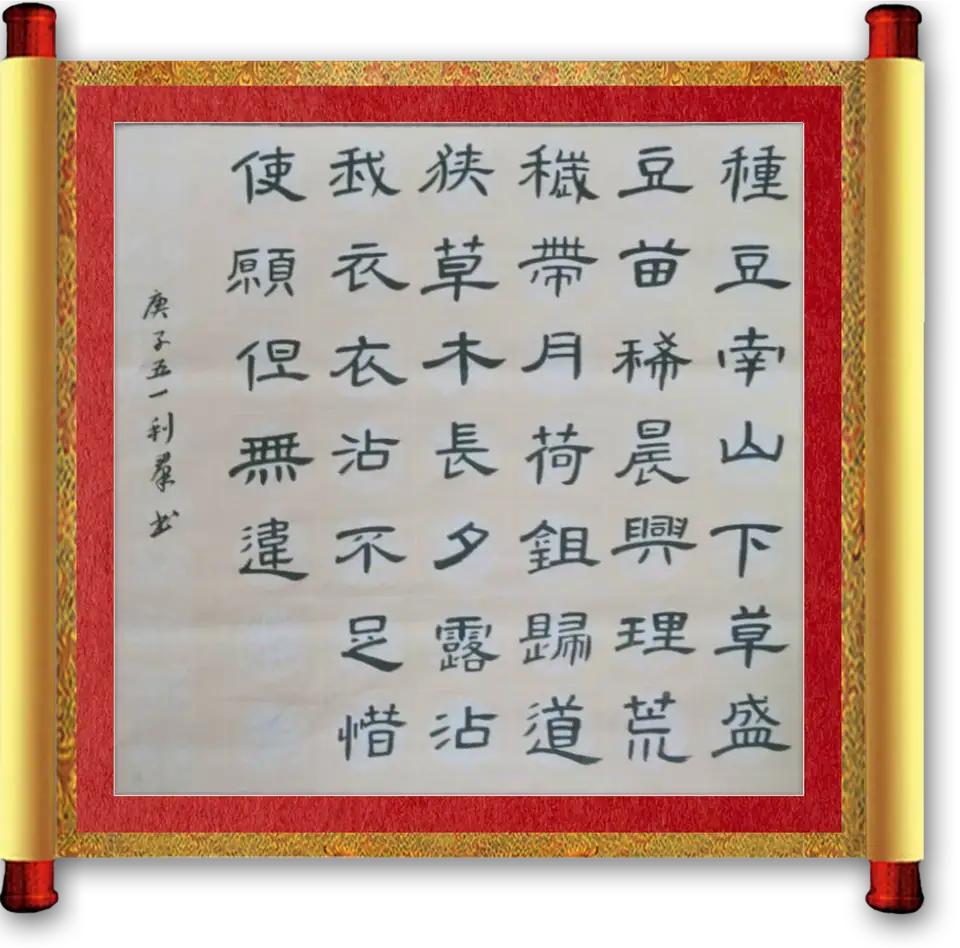 種豆南山下草盛
豆苗稀晨興理荒
穢帶月荷鉏歸道
狹草木長夕露沾
我衣衣沾不足惜
使願但無違
庚子五一利群书